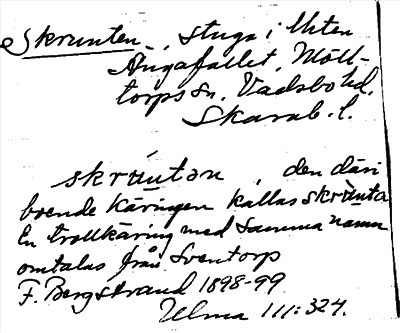 Skrunten, stuga i Uten
Ängafallet, Möll-
torps sn. Vadsbo hd.
Skarab. l.
skrúntən, den däri
boende käringen kallas skrunta
En trollkäring med samma namn
omtalas från Sventorp
F. Bergstrand 1898-99
Ulma 111:324.